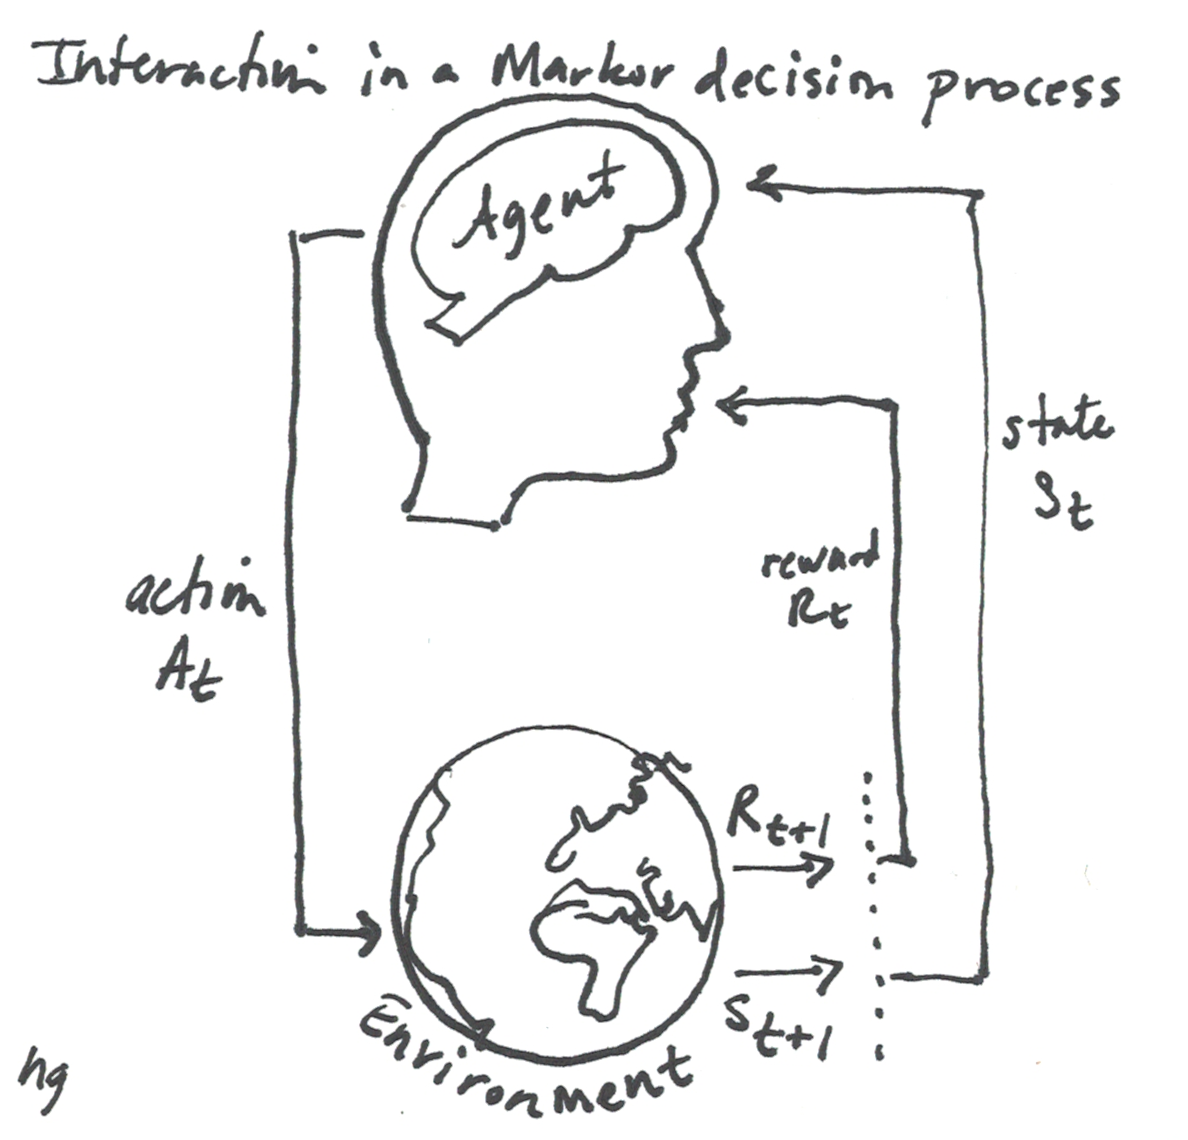 Interaction in a Markov decision process
Agent
state
St
reward
Rt
action
At
Rt+1
St+1
Environment
hg